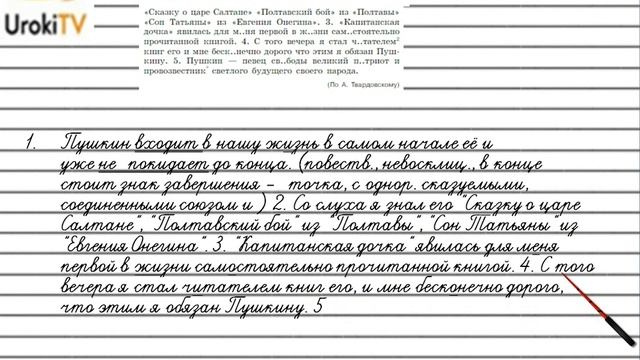 UrokiTV
«Сказку о царе Салтане» «Полтавский бой» из «Полтавы»
«Сон Татьяны» из «Евгения Онегина». 3. «Капитанская
дочка» явилась для м..ня первой в ж..зни сам..стоятельно
прочитанной книгой. 4. С того вечера я стал ч..тателем²
книг его и мне беск..нечно дорого что этим я обязан Пуш-
кину. 5. Пушкин — певец св..боды великий п..триот и
провозвестник* светлого будущего своего народа.
(По А. Твардовскому)
1. Пушкин входит в нашу жизнь в самом начале её и
уже не покидает до конца. (повеств., невосклиц., в конце
стоит знак завершения – точка, с однор. сказуемыми,
соединенными союзом и ) 2. Со слуха я знал его "Сказку о царе
Салтане", "Полтавский бой" из "Полтавы", "Сон Татьяны" из
"Евгения Онегина". 3. "Капитанская дочка" явилась для меня
первой в жизни самостоятельно прочитанной книгой. 4. С того
вечера я стал читателем книг его, и мне бесконечно дорого,
что этим я обязан Пушкину. 5